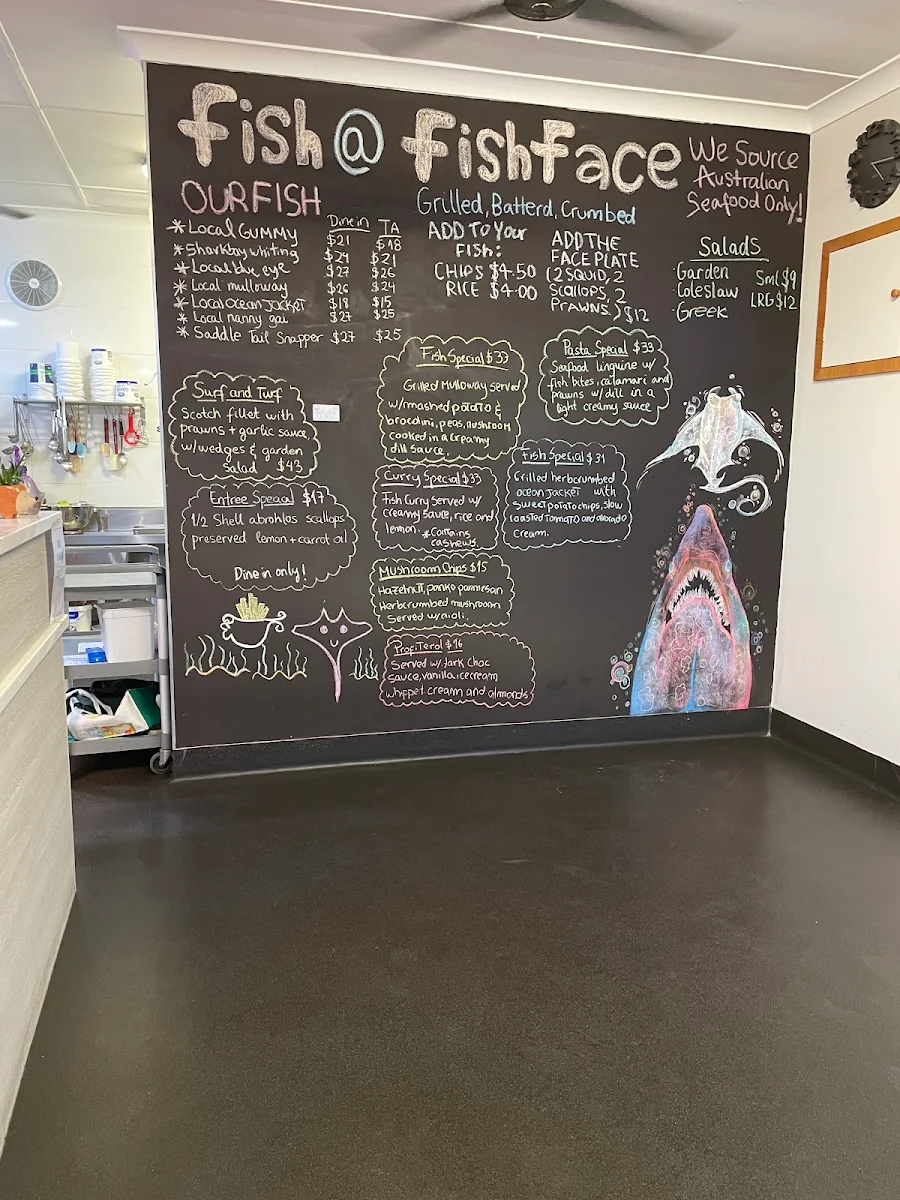 fish @ fishface
We Source
Australian
Seafood Only!
OUR FISH
Dine in TA
* Local GUMMY $21 $18
* Sharkbay whiting $24 $21
* Local blue eye $27 $26
* Local mulloway $26 $24
* Local ocean Jacket $18 $15
* Local nanny gai $27 $25
* Saddle Tail Snapper $27 $25
Grilled, Batterd, Crumbed
ADD To Your
FISH:
CHIPS $4.50
RICE $4.00
ADD THE
FACE PLATE
(2 SQUID, 2
SCALLOPS, 2
PRAWNS) $12
Salads
Garden
Coleslaw
Greek
Sml $9
LRG $12
Surf and Turf
Scotch fillet with
prawns + garlic sauce
w/wedges & garden
salad $43
Entree Special $17
1/2 Shell abrohlos scallops
preserved lemon + carrot oil
Dine in only!
Fish Special $33
Grilled Mulloway served
w/mashed potato &
brocolini, peas, mushroom
cooked in a creamy
dill sauce.
Pasta Special $33
Seafood linguine w/
fish bites, calamari and
prawns w/ dill in a
light creamy sauce
Curry Special $33
Fish Curry Served w/
creamy sauce, rice and
lemon. *Contains
cashews.
Fish Special $31
Grilled herbcrumbed
ocean Jacket with
sweet potato chips, slow
roasted tomato and avocado
cream.
Mushroom Chips $15
Hazelnut, panko parmesan
Herbcrumbed mushroom
Served w/aioli.
Profiterol $16
Served w/ dark choc
sauce, vanilla icecream
whippet cream and almonds